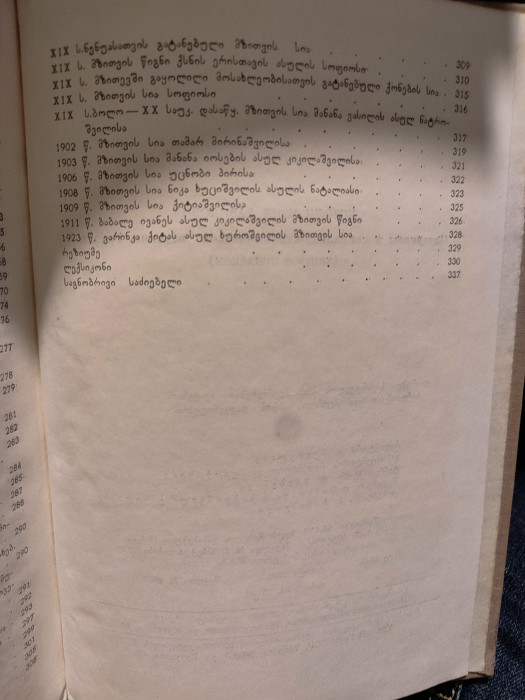 XIX ს.ნენესათვის გატანებული მზითვის სია . . . . . 309
XIX ს. მზითვის წიგნი ქსნის ერისთავის ასულის სოფიოსი . . 310
XIX ს. მზითევში გაყოლილი მოსახლეობისათვის გატანებული ქონების სია . 315
XIX ს. მზითვის სია სოფიოსი . . . . . . 316
XIX ს.ბოლო — XX საუკ. დასაწყ. მზითვის სია მანანა ვასილის ასულ ნატრო-
შვილისა . . . . . . . . . 317
1902 წ. მზითვის სია თამარ მირინაშვილისა . . . . 319
1903 წ. მზითვის სია მანანა იოსების ასულ კიკილაშვილისა . . . 321
1906 წ. მზითვის სია უცნობი პირისა . . . . . 322
1908 წ. მზითვის სია ნიკა ხუციშვილის ასულის ნატალიასი . . . 323
1909 წ. მზითვის სია ქიტიაშვილისა . . . . . 325
1911 წ. ბაბალე ივანეს ასულ კიკილაშვილის მზითვის წიგნი . . . 326
1923 წ. ვარინკა ქიტას ასულ ხუროშვილის მზითვის სია . . . 328
რეზიუმე . . . . . . . . 329
ლექსიკონი . . . . . . . . 330
საგნობრივი საძიებელი . . . . . . 337
277
278
279
281
282
283
284
285
287
288
290
290
291
292
293
297
299
301
305
308